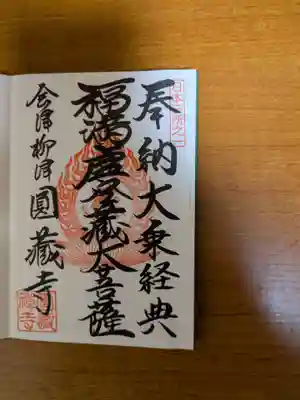 日本三所之一
奉納大乗経典
福満虚空藏大菩薩
会津柳津圓藏寺